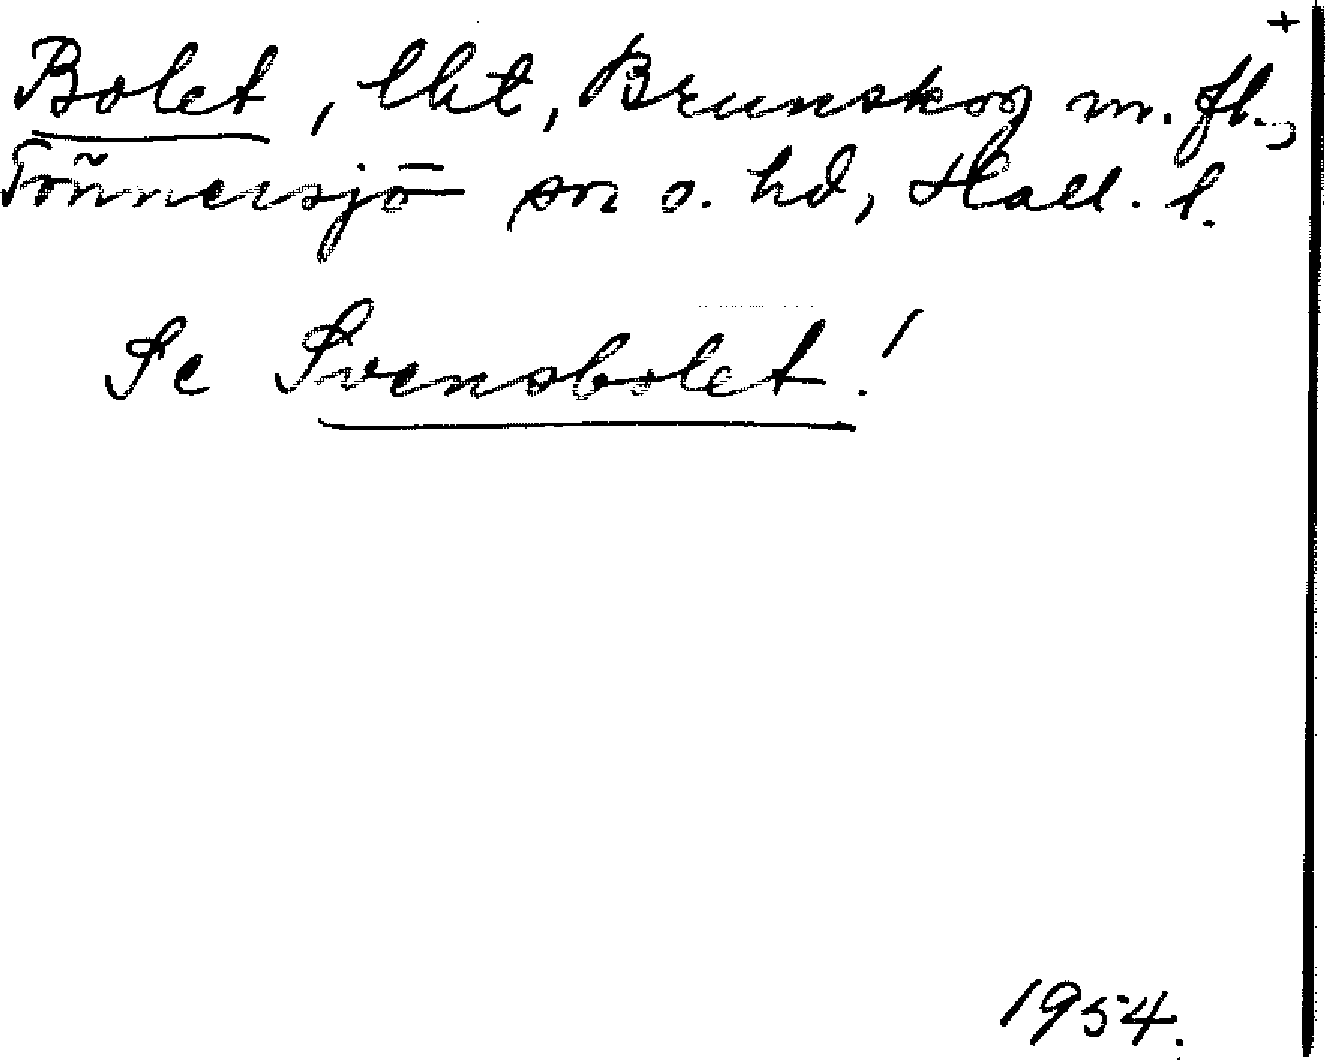 +
Bolet, lht, Brunskog m. fl.,
Tönnersjö sn o. hd, Hall. l.
Se Svensbolet!
1954.